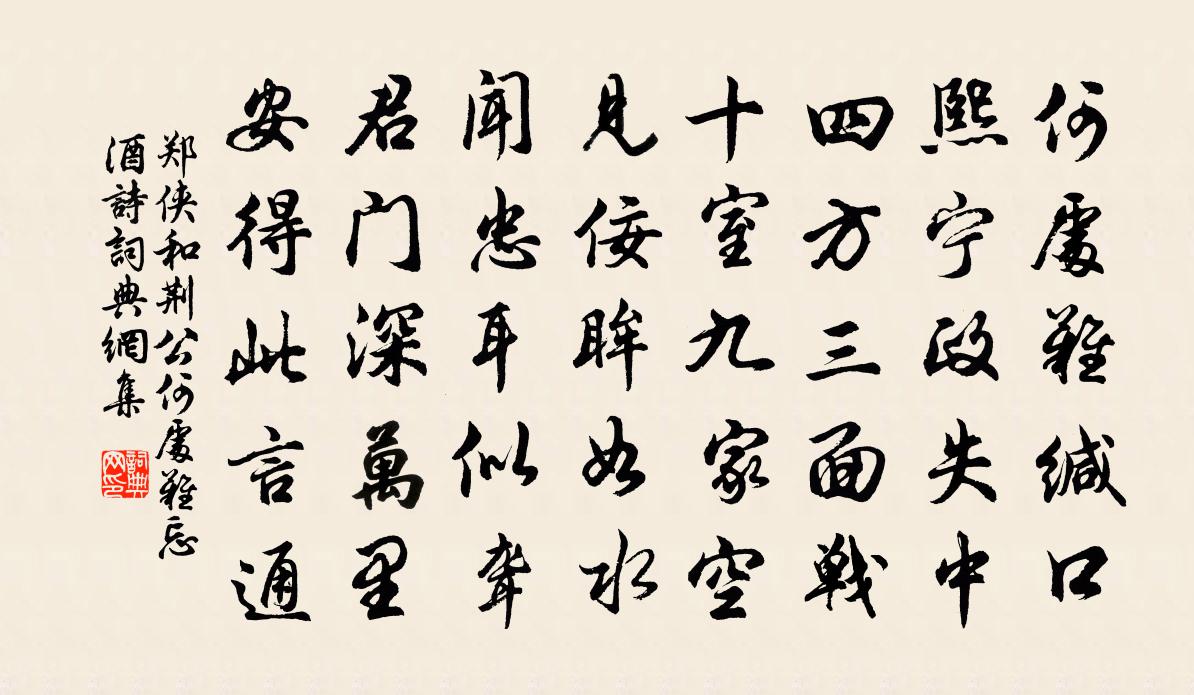 何處難缄口
熙宁政失中
四方三面戦
十室九家空
見佞眸如水
闻忠耳似聋
君门深萬里
安得此言通
郑侠和荆公何處難忘
酒詩詞典網集
詞典
网印